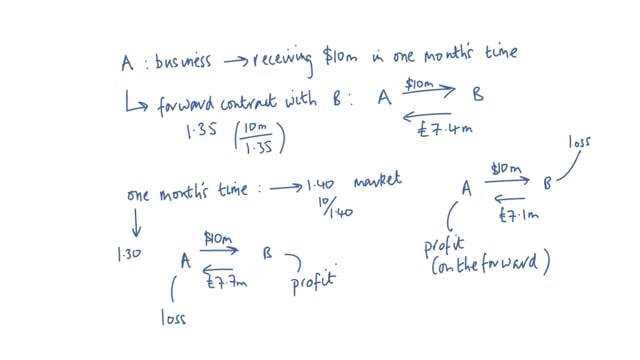 A : business → receiving $10m in one month's time
↳ forward contract with B :
1.35 (10m/1.35)
$10m
A → B
←
£7.4m
one month's time : → 1.40 market
10/1.40
loss
$10m
A → B
←
£7.1m
profit
(on the forward)
1.30
$10m
A → B
←
£7.7m
profit
loss